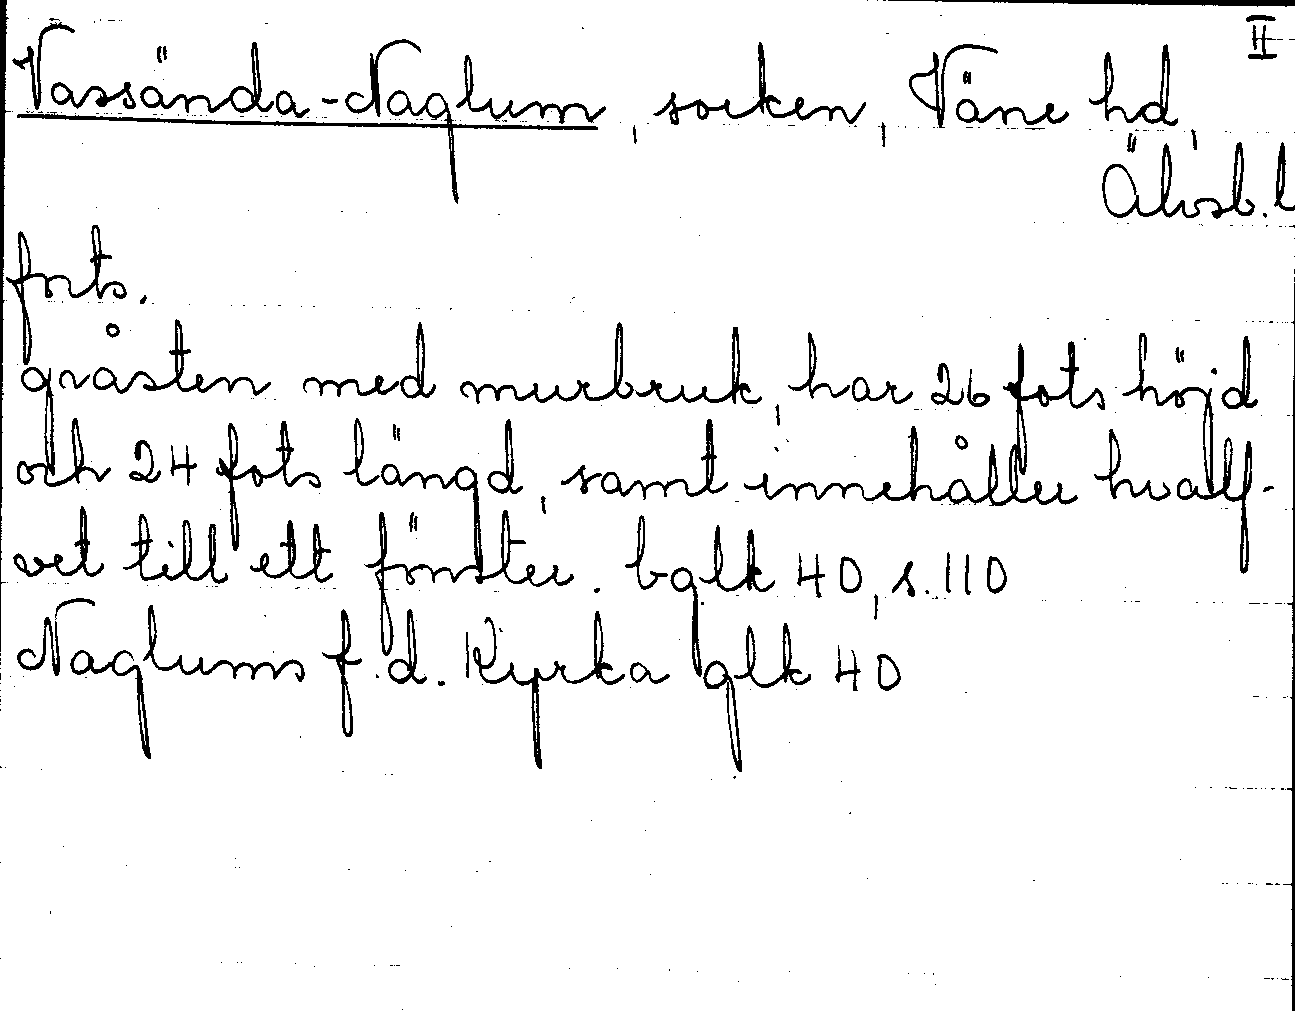 II
Vassända-Naglum, socken, Väne hd,
Älvsb. l
forts.
gråsten med murbruk, har 26 fots höjd
och 24 fots längd, samt innehåller hvalf-
vet till ett fönster. bglk 40, s. 110
Naglums f.d. Kyrka glk 40